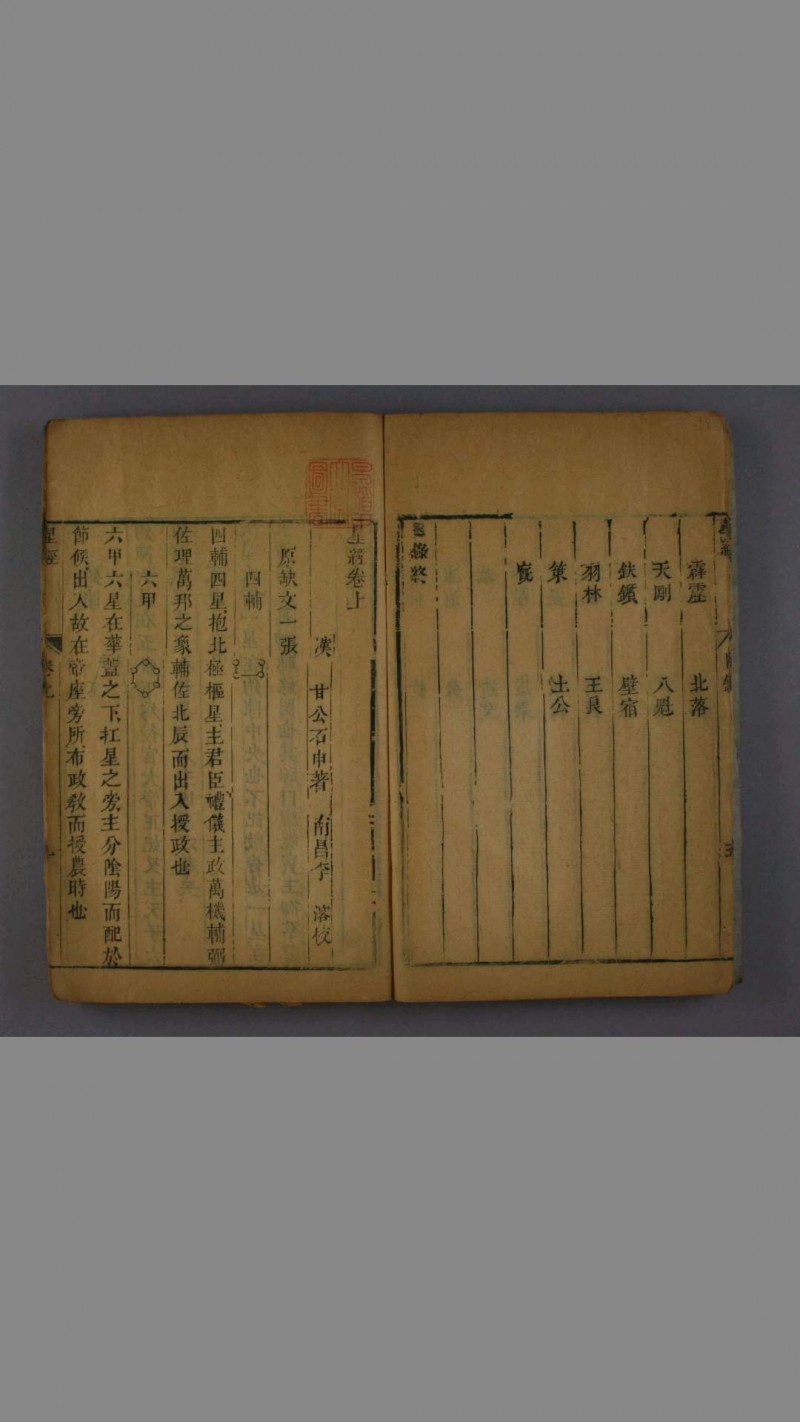 霹靂 北落
天剛 八魁
鈇鑕 壁宿
羽林 王良
策 土公
目錄終
星經卷上
漢 甘公石申著 南昌李 校
原缺文一張
四輔
四輔四星抱北極樞星主君臣禮儀主政萬機輔弼
佐理萬邦之象輔佐北辰而出入授政也
六甲
六甲六星在華蓋之下扛星之旁主分陰陽而配於
節候出入故在帝座旁所布政教而授農時也
星經